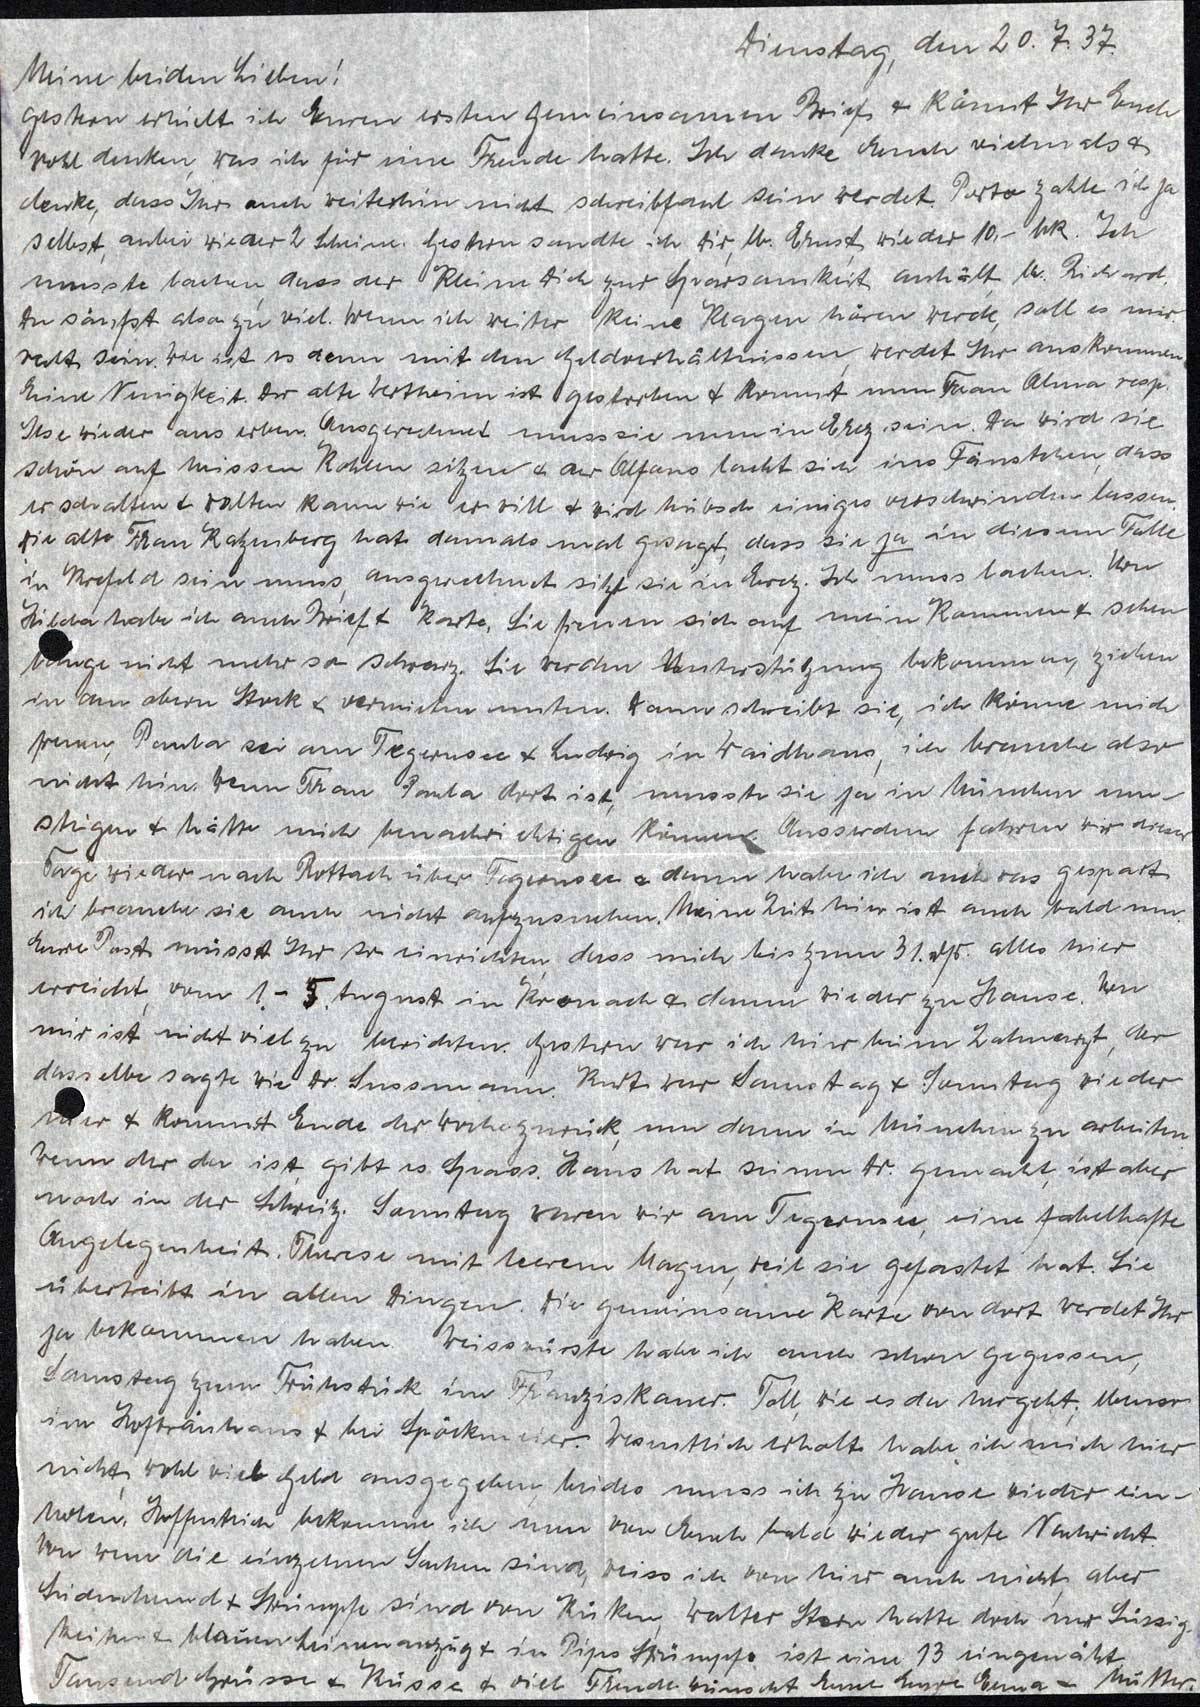 Dienstag, den 20.7.37.
Meine beiden Lieben!
gestern erhielt ich Euren ersten gemeinsamen Brief & könnt Ihr Euch
wohl denken, was ich für eine Freude hatte. Ich danke Euch vielmals &
denke, dass Ihr auch weiterhin nicht schreibfaul sein werdet. Porto zahle ich ja
selbst, anbei wieder 2 Scheine. Gestern sandte ich Dir, lb. Ernst, wieder 10,- Mk. Ich
musste lachen, dass der Kleine Dich zur Sparsamkeit anhält, lb. Richard.
Du säufst also zu viel. Wenn ich weiter keine Klagen hören werde, soll es mir
recht sein. Wie ist es denn mit den Geldverhältnissen, werdet Ihr auskommen
Eine Neuigkeit. Der alte Wertheim ist gestorben & kommt nun Frau Alma resp.
Ilse wieder ans erben. Ausgerechnet muss sie nun in Erez sein. Da wird sie
schön auf heissen Kohlen sitzen & der Alfons lacht sich ins Fäustchen, dass
er schalten & walten kann wie er will & wird hübsch einiges verschwinden lassen.
Die alte Frau Katzenberg hat damals mal gesagt, dass sie ja in diesem Falle
in Krefeld sein muss, ausgerechnet sitzt sie in Erez. Ich muss lachen. Von
Hilda habe ich auch Brief & Karte. Sie freuen sich auf mein Kommen & sehen
nicht mehr so schwarz. Sie werden Unterstützung bekommen, ziehen
in den obern Stock & vermieten unten. Dann schreibt sie, ich könne mich
freuen, Paula sei am Tegernsee & Ludwig in Waidhaus, ich brauche also
nicht hin. Wenn Frau Paula dort ist, musste sie ja in München um-
steigen & hätte mich benachrichtigen können. Ausserdem fahren wir dieser
Tage wieder nach Rottach über Tegernsee & dann habe ich auch was gespart
ich brauche sie auch nicht aufzusuchen. Meine Zeit hier ist auch bald um.
Eure Post müsst Ihr so einrichten, dass mich bis zum 31. ds. alles hier
erreicht, vom 1.-5. August in Kronach & dann wieder zu Hause. Von
mir ist nicht viel zu berichten. Gestern war ich hier beim Zahnarzt, der
dasselbe sagte wie Dr. Sussmann. Kurt war Samstag & Sonntag wieder
hier & kommt Ende der Woche zurück, um dann in München zu arbeiten.
Wenn der da ist, gibt es Spass. Hans hat seinen Dr. gemacht, ist aber
noch in der Schweiz. Sonntag waren wir am Tegernsee, eine fabelhafte
Angelegenheit. Therese mit leerem Magen, weil sie gefastet hat. Sie
übertreibt in allen Dingen. Die gemeinsame Karte von dort werdet Ihr
ja bekommen haben. Weisswürste habe ich auch schon gegessen,
Samstag zum Frühstück im Franziskaner. Toll, wie es da hergeht, ebenso
im Hofbräuhaus & bei Spöckmeier. Wesentlich erholt habe ich mich hier
nicht, wohl viel Geld ausgegeben, beides muss ich zu Hause wieder ein-
holen. Hoffentlich bekomme ich nun von Euch bald wieder gute Nachricht.
Von wem die einzelnen Sachen sind, weiss ich von hier auch nicht, aber
Seidenhemd & Strümpfe sind von Küken, Walter Stern hatte doch nur Süssig
keiten & blauen Leinenanzug & in Pips Strümpfe ist eine 13 eingenäht.
Tausend Grüsse & Küsse & viel Freude wünscht Euch Eure Erna - Mutter.